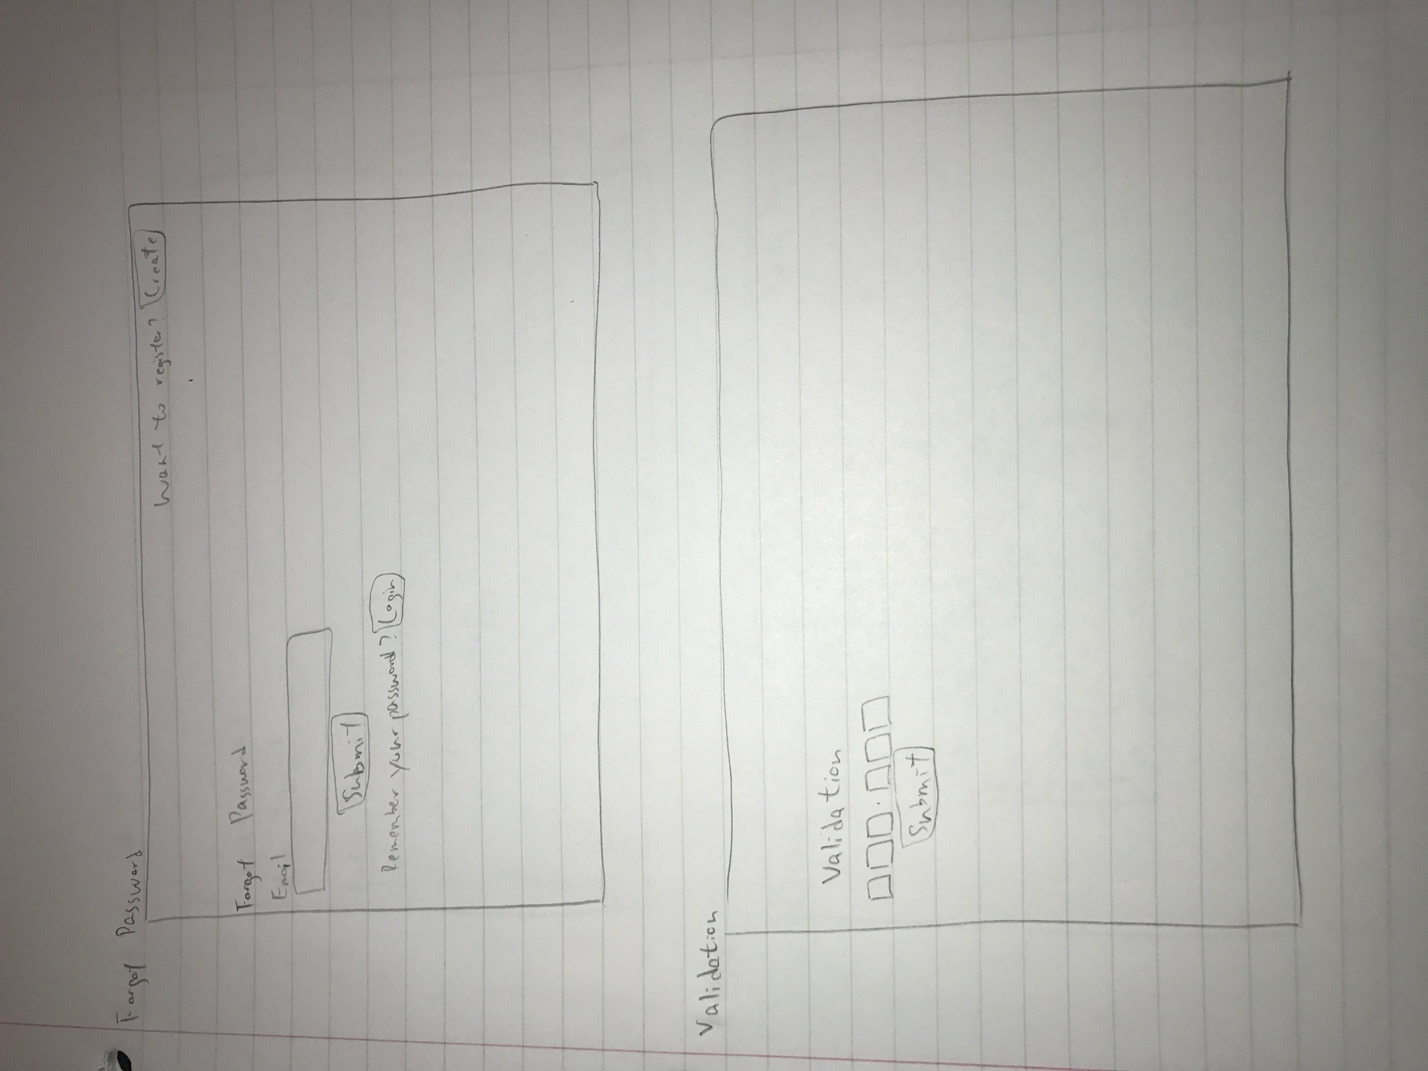 Forgot Password
Want to register? Create
Forgot Password
Email
Submit
Remember your password? Login
Validation
Validation
Submit